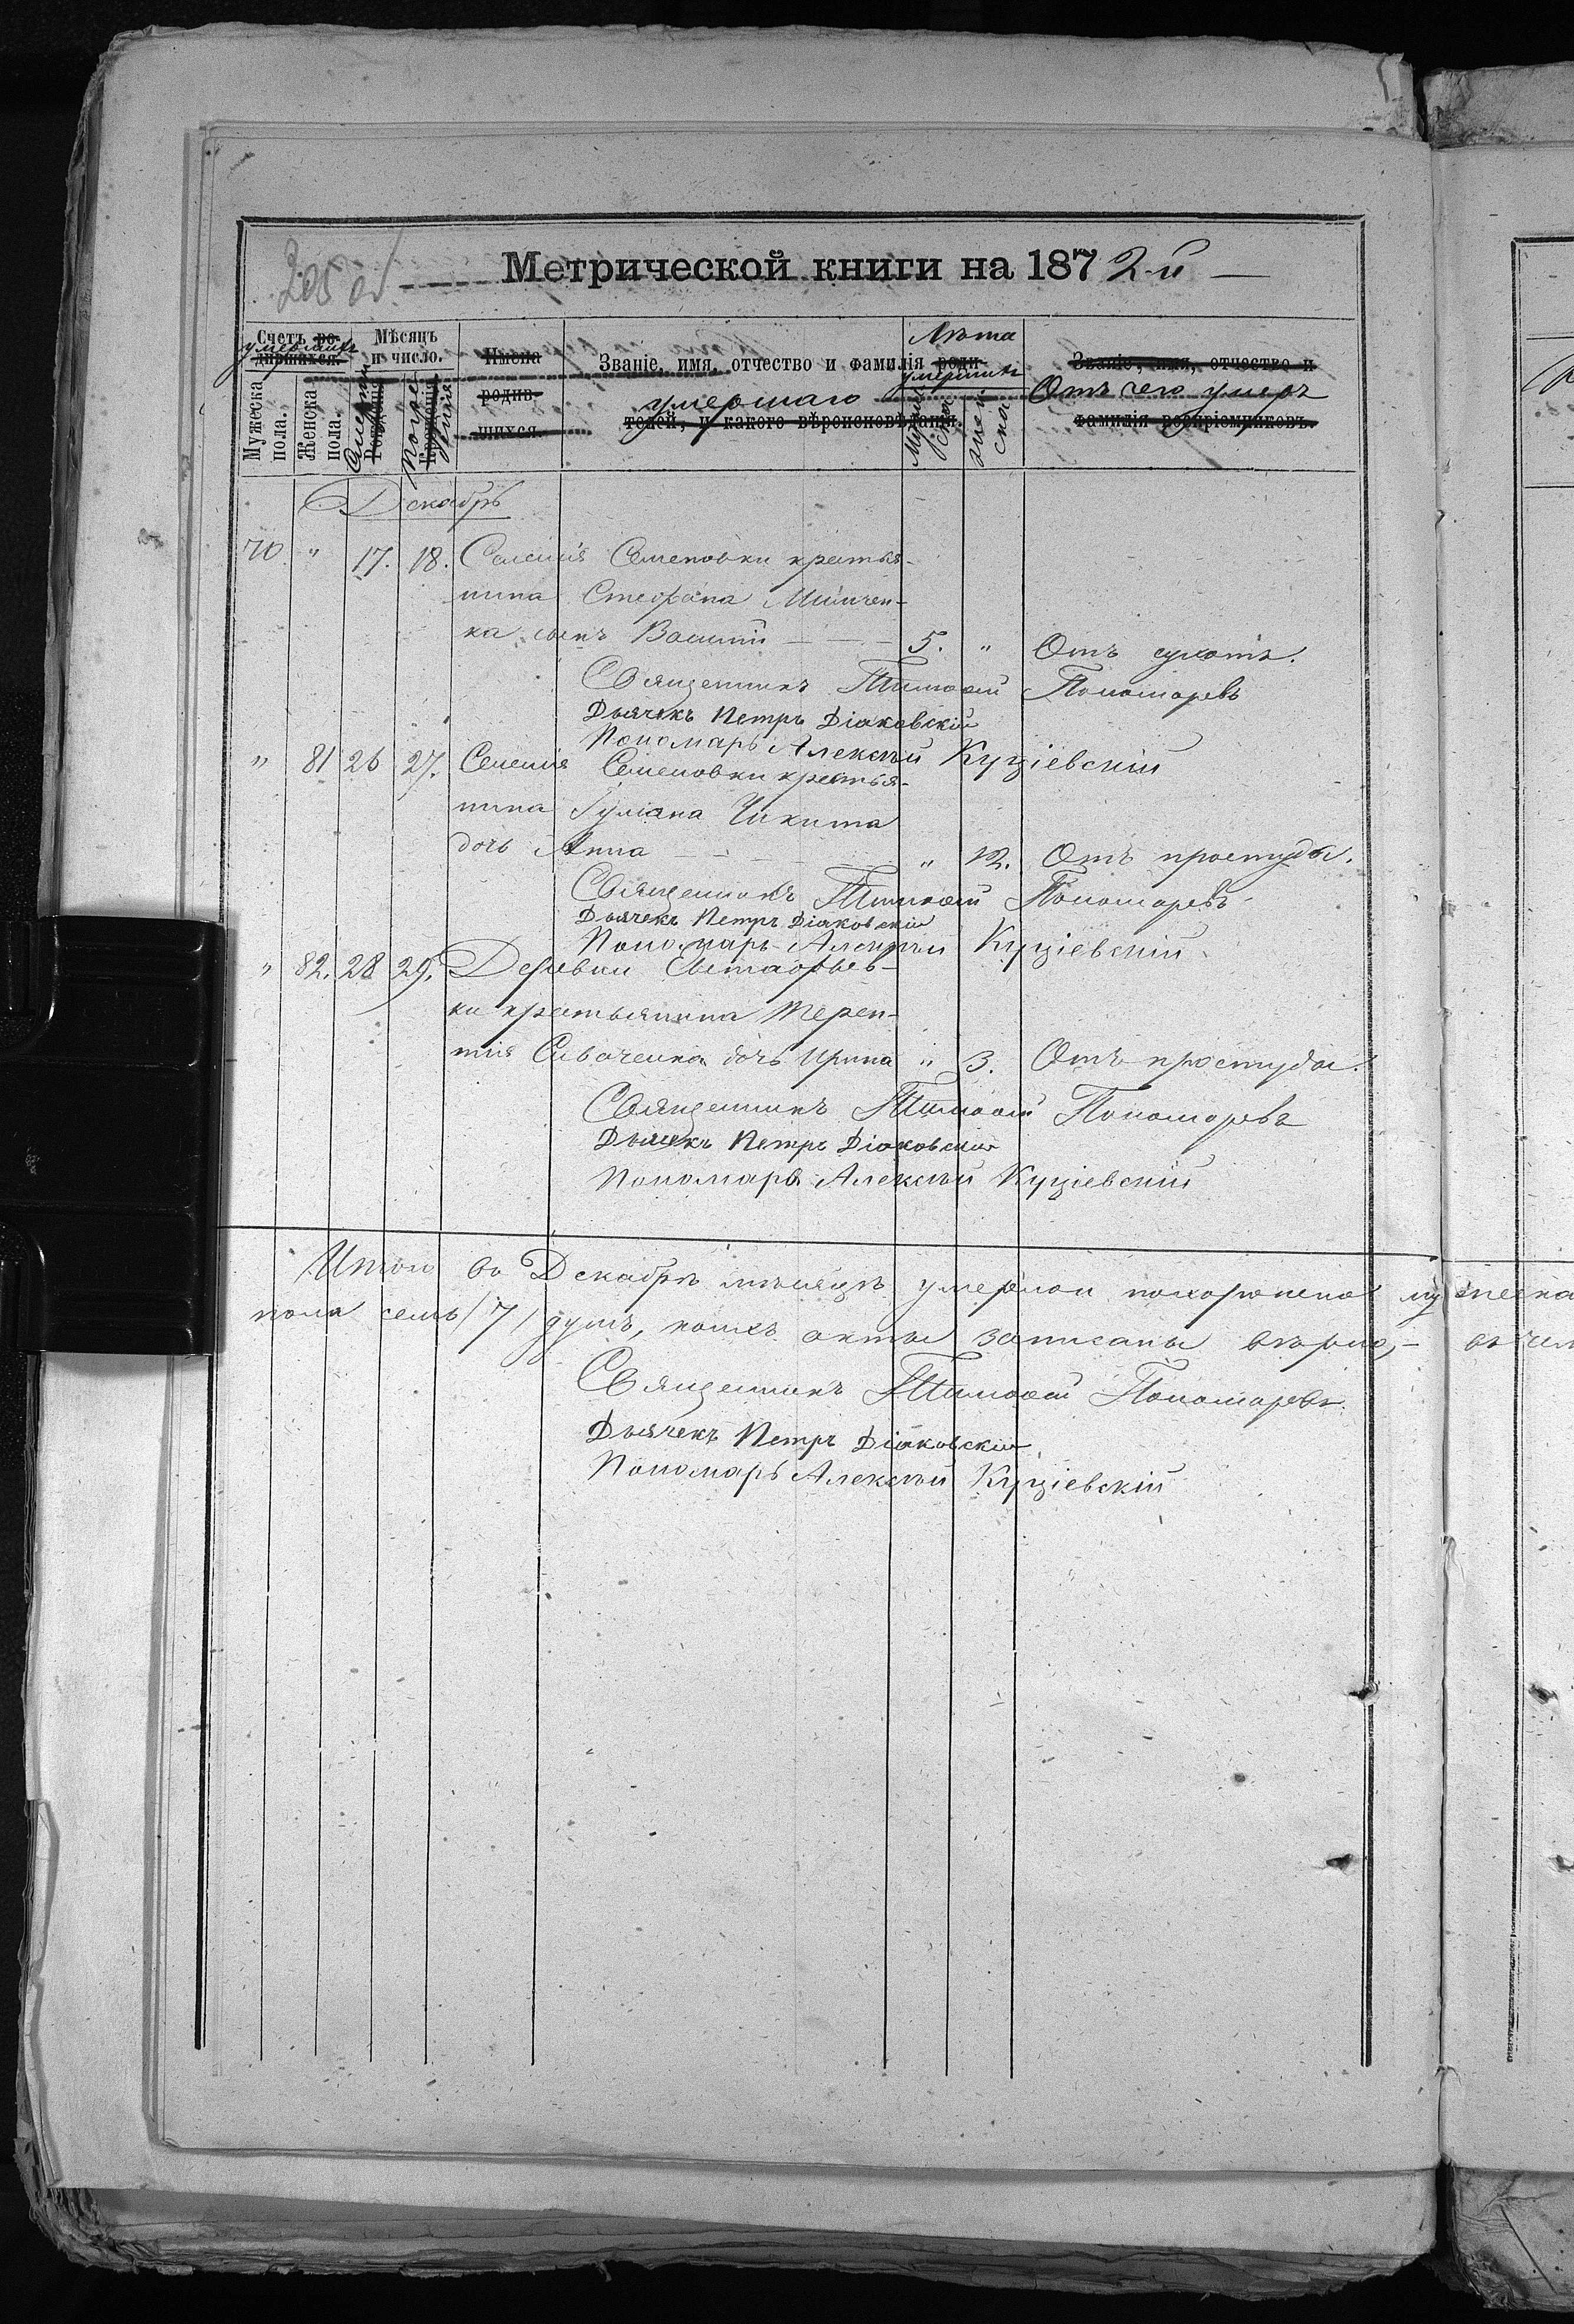 205 об
Метрической книги на 1872-й
Счетъ родившихся. умершихъ
Мѣсяцъ и число.
Имена родившихся.
Званіе, имя, отчество и фамилія родителей, и какого вѣроисповѣданія. умершаго
Лѣта умершихъ
Званіе, имя, отчество и фамилія воспріемниковъ. Отъ чего умеръ
Мужеска пола.
Женска пола.
Смерти Рожденія
Погребенія Крещенія
Мужеска
Женска
Декабрь
70 " 17. 18. Селенія Семеновки крестья-
нина Стефана Минчен-
ка сынъ Василій 5. " Отъ сухотъ.
Священникъ Тимоѳей Пономаревъ
Дьячекъ Петръ Діаковскій
Пономарь Алексѣй Куціевскій
" 81 26 27. Селенія Семеновки крестья-
нина Іуліана Чикита
дочь Анна " 12. Отъ простуды.
Священникъ Тимоѳей Пономаревъ
Дьячекъ Петръ Діаковскій
Пономарь Алексѣй Куціевскій
" 82. 28 29. Деревни Евстафьев-
ки крестьянина Терен-
тія Сиваченка дочь Ирина " 3. Отъ простуды.
Священникъ Тимоѳей Пономаревъ
Дьячекъ Петръ Діаковскій
Пономарь Алексѣй Куціевскій
Итого въ Декабрѣ мѣсяцѣ умерло и похоронено мужеска
пола семь /7/ душъ, коихъ акты записаны вѣрно, - въ чем
Священникъ Тимоѳей Пономаревъ
Дьячекъ Петръ Діаковскій
Пономарь Алексѣй Куціевскій